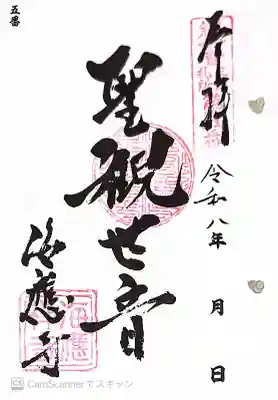 奉拝
令和八年 月 日
聖観世音
海應寺
五番
CS CamScannerでスキャン